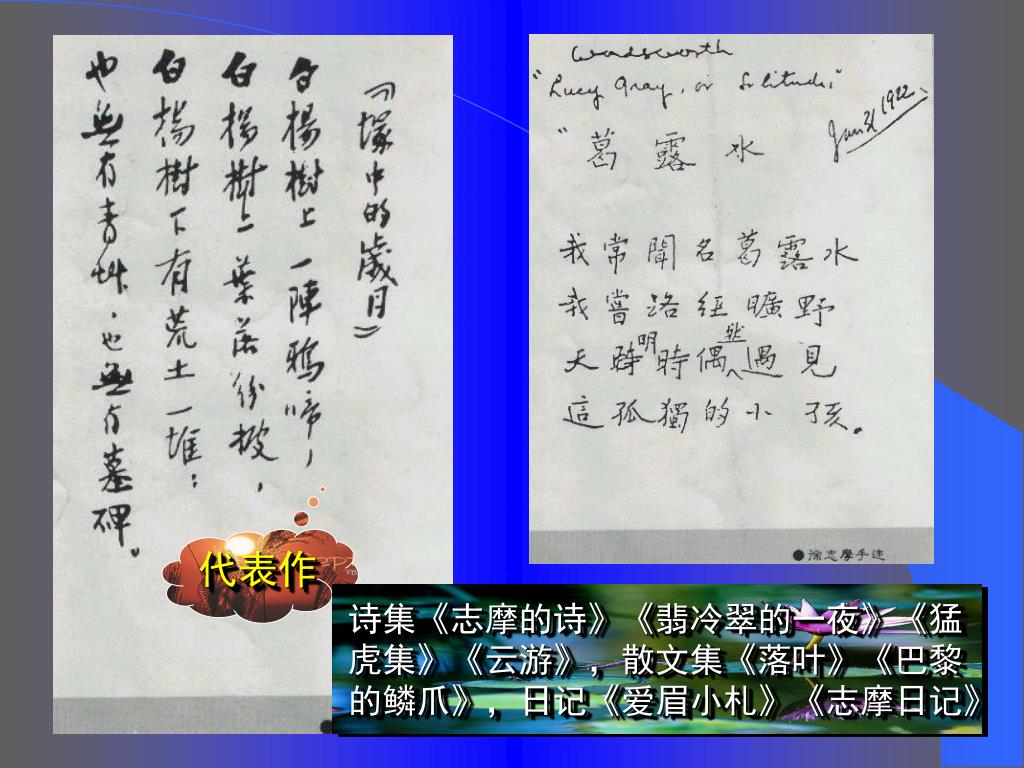 『塚中的歲月』
白楊樹上一陣鴉啼，
白楊樹上葉落紛披，
白楊樹下有荒土一堆：
也無有青艸，也無有墓碑。
Wordsworth
"Lucy Gray, or Solitude"
Jan 31 1922
"葛露水
我常聞名葛露水
我嘗路經曠野
天
明時偶然遇見
這孤獨的小孩。
●徐志摩手迹
代表作
诗集《志摩的诗》《翡冷翠的一夜》《猛
虎集》《云游》，散文集《落叶》《巴黎
的鳞爪》，日记《爱眉小札》《志摩日记》